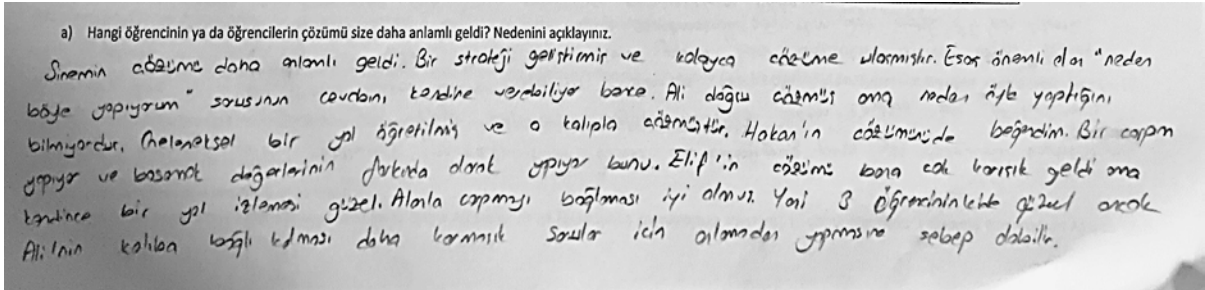 a) Hangi öğrencinin ya da öğrencilerin çözümü size daha anlamlı geldi? Nedenini açıklayınız.
Sinemin çözümü daha anlamlı geldi. Bir strateji geliştirmiş ve kolayca çözüme ulaşmıştır. Esas önemli olan "neden
böyle yapıyorum" sorusunun cevabını kendine verebiliyor bence. Ali doğru çözmüş ama neden öyle yaptığını
bilmiyordur. Geleneksel bir yol öğretilmiş ve o kalıpla çözmüştür. Hakan'ın çözümünüde beğendim. Bir çarpım
yapıyor ve basamak değerlerinin farkında olarak yapıyor bunu. Elif'in çözümü bana çok karışık geldi ama
kendince bir yol izlemesi güzel. Alanla çarpmayı bağlaması iyi olmuş. Yani 3 öğrencininkide güzel ancak
Ali'nin kalıba bağlı kalması daha karmaşık sorular için anlamadan yapmasına sebep olabilir.